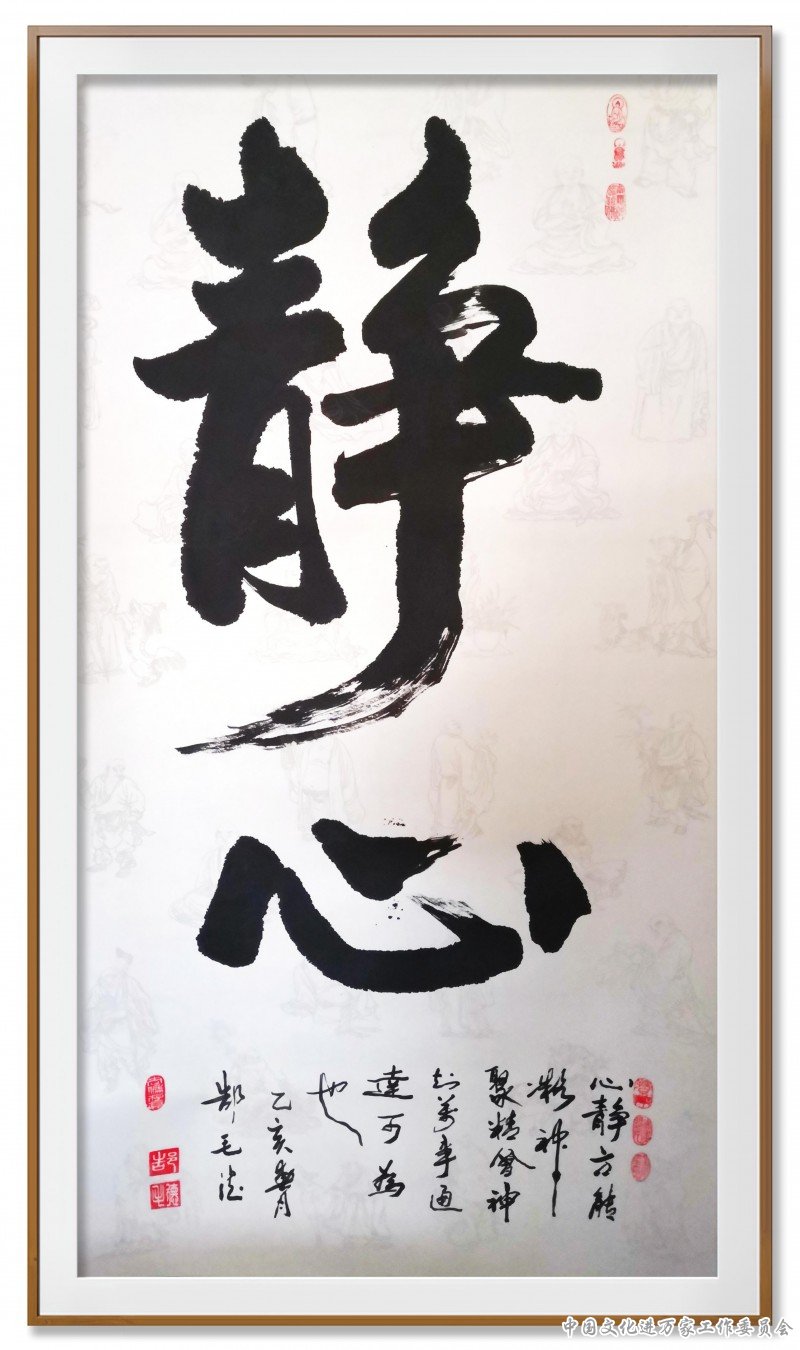 静心
心静方能
凝神
聚精会神
则万事通
达可为
也
乙亥春月
郜毛德
中国文化进万家工作委员会